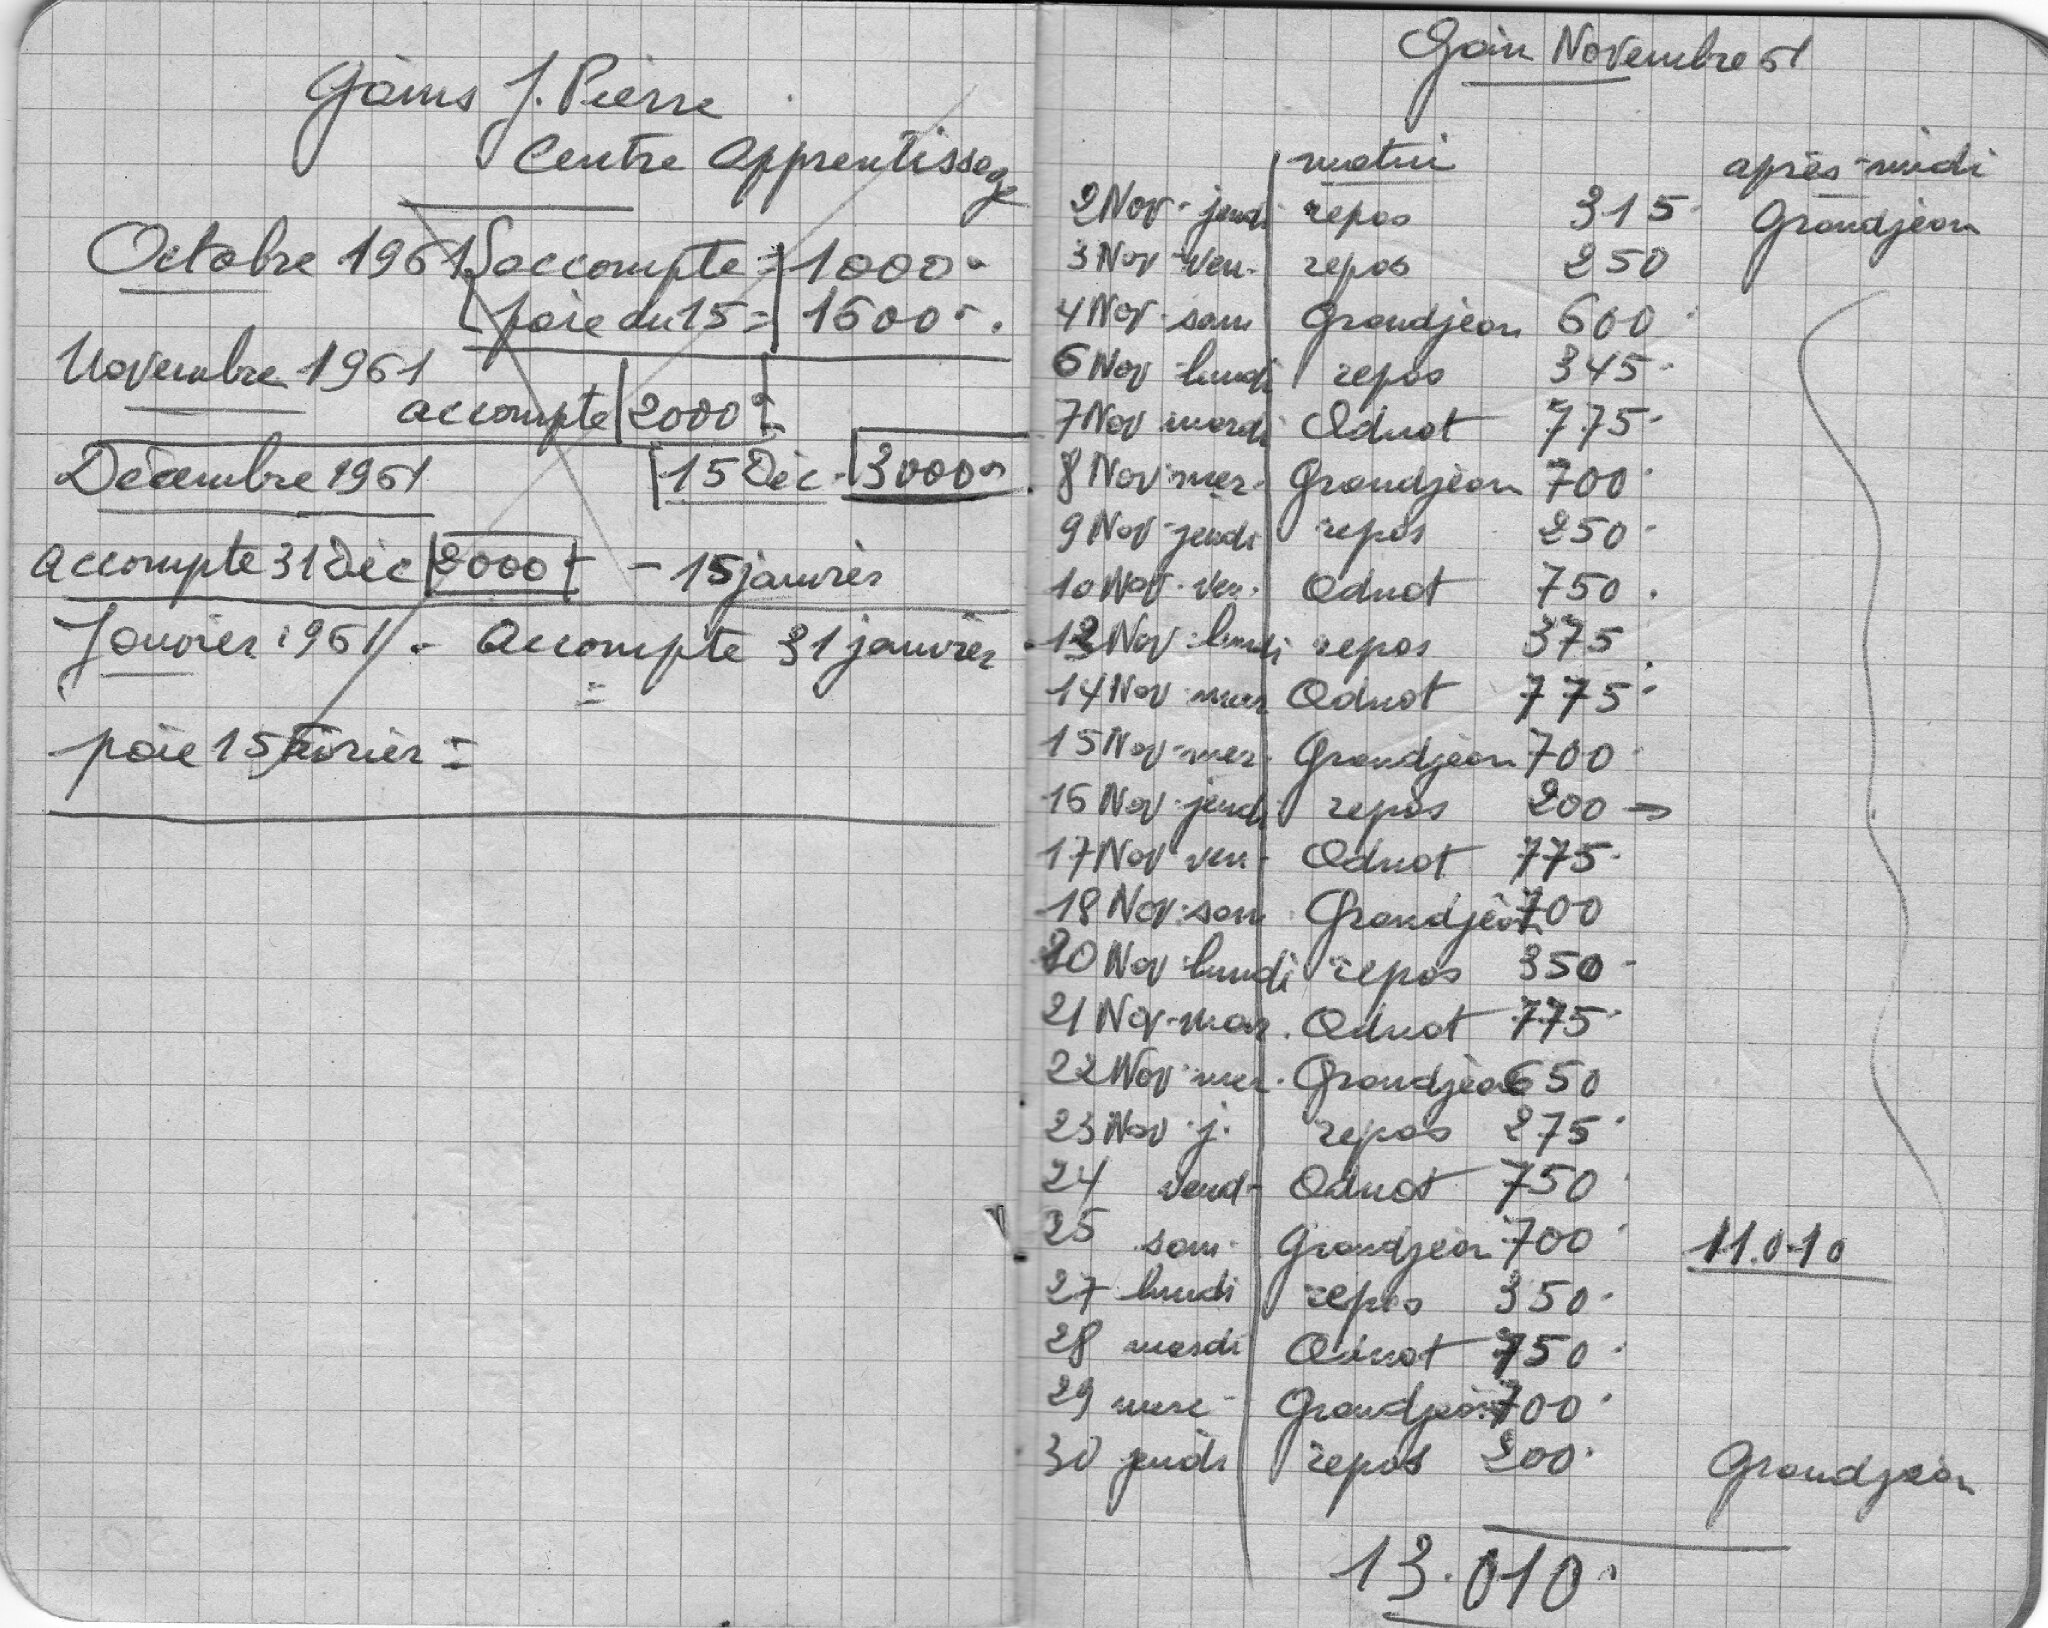 Gains J. Pierre
Centre Apprentissage
Octobre 1961 accompte = 1000
paie du 15 = 1500
Novembre 1961
accompte 2000
Décembre 1961 15 Déc. 3000
accompte 31 Déc 2000 - 15 janvier
Janvier 1961 - Accompte 31 janvier
=
paie 15 Février =
Gain Novembre 61
matin après-midi
2 Nov. jeudi repos 315 Grandjean
3 Nov ven. repos 250
4 Nov sam Grandjean 600
6 Nov lundi repos 345
7 Nov mardi Odnot 775
8 Nov mer. Grandjean 700
9 Nov jeudi repos 250
10 Nov. ven. Odnot 750
13 Nov lundi repos 375
14 Nov mar Odnot 775
15 Nov mer. Grandjean 700
16 Nov jeudi repos 200 →
17 Nov ven. Odnot 775
18 Nov. sam Grandjean 700
20 Nov lundi repos 350
21 Nov mar. Odnot 775
22 Nov mer. Grandjean 650
23 Nov j. repos 275
24 vend. Odnot 750
25 sam. Grandjean 700 11.010
27 lundi repos 350
28 mardi Odnot 750
29 merc Grandjean 700
30 jeudi repos 200 Grandjean
13.010